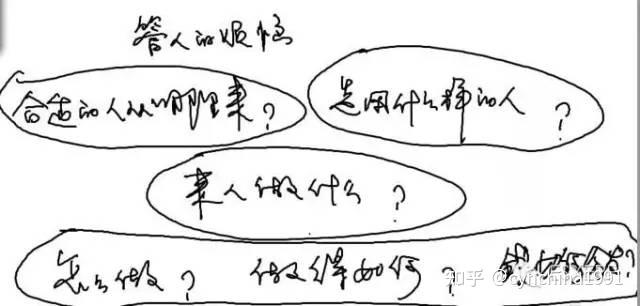 管人的烦恼
合适的人从哪里来？ 选用什么样的人？
来人做什么？
怎么做？ 做得如何？ 钱如何分？
知乎 @cynthina1991